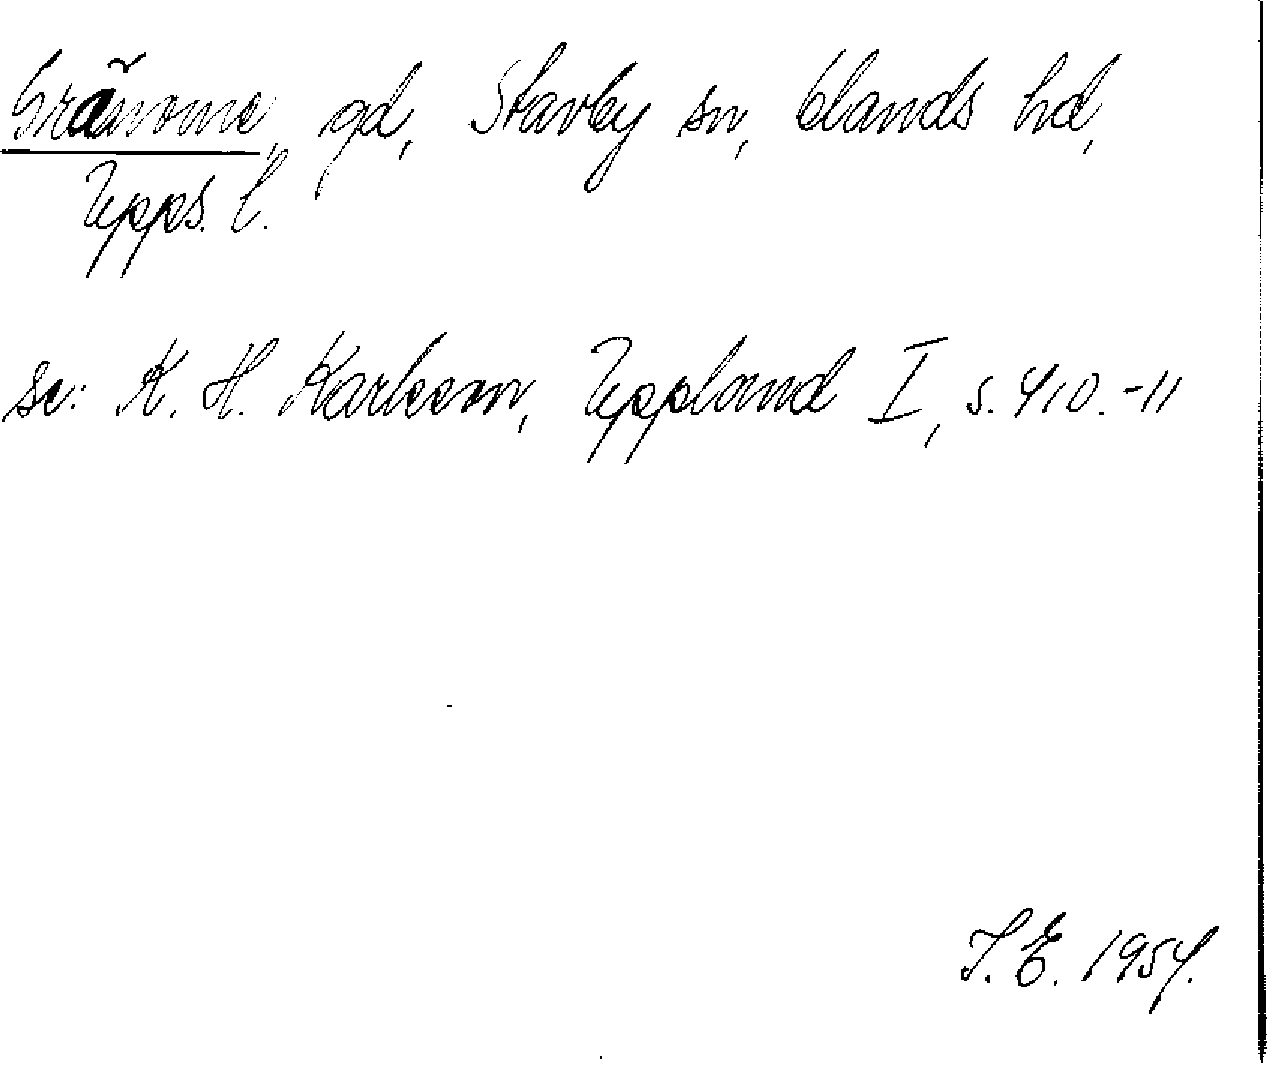 Gränome, gd, Stavby sn, Olands hd,
Upps. l.
se: K. H. Karlsson, Uppland I, s. 410.-11
I. E. 1954.